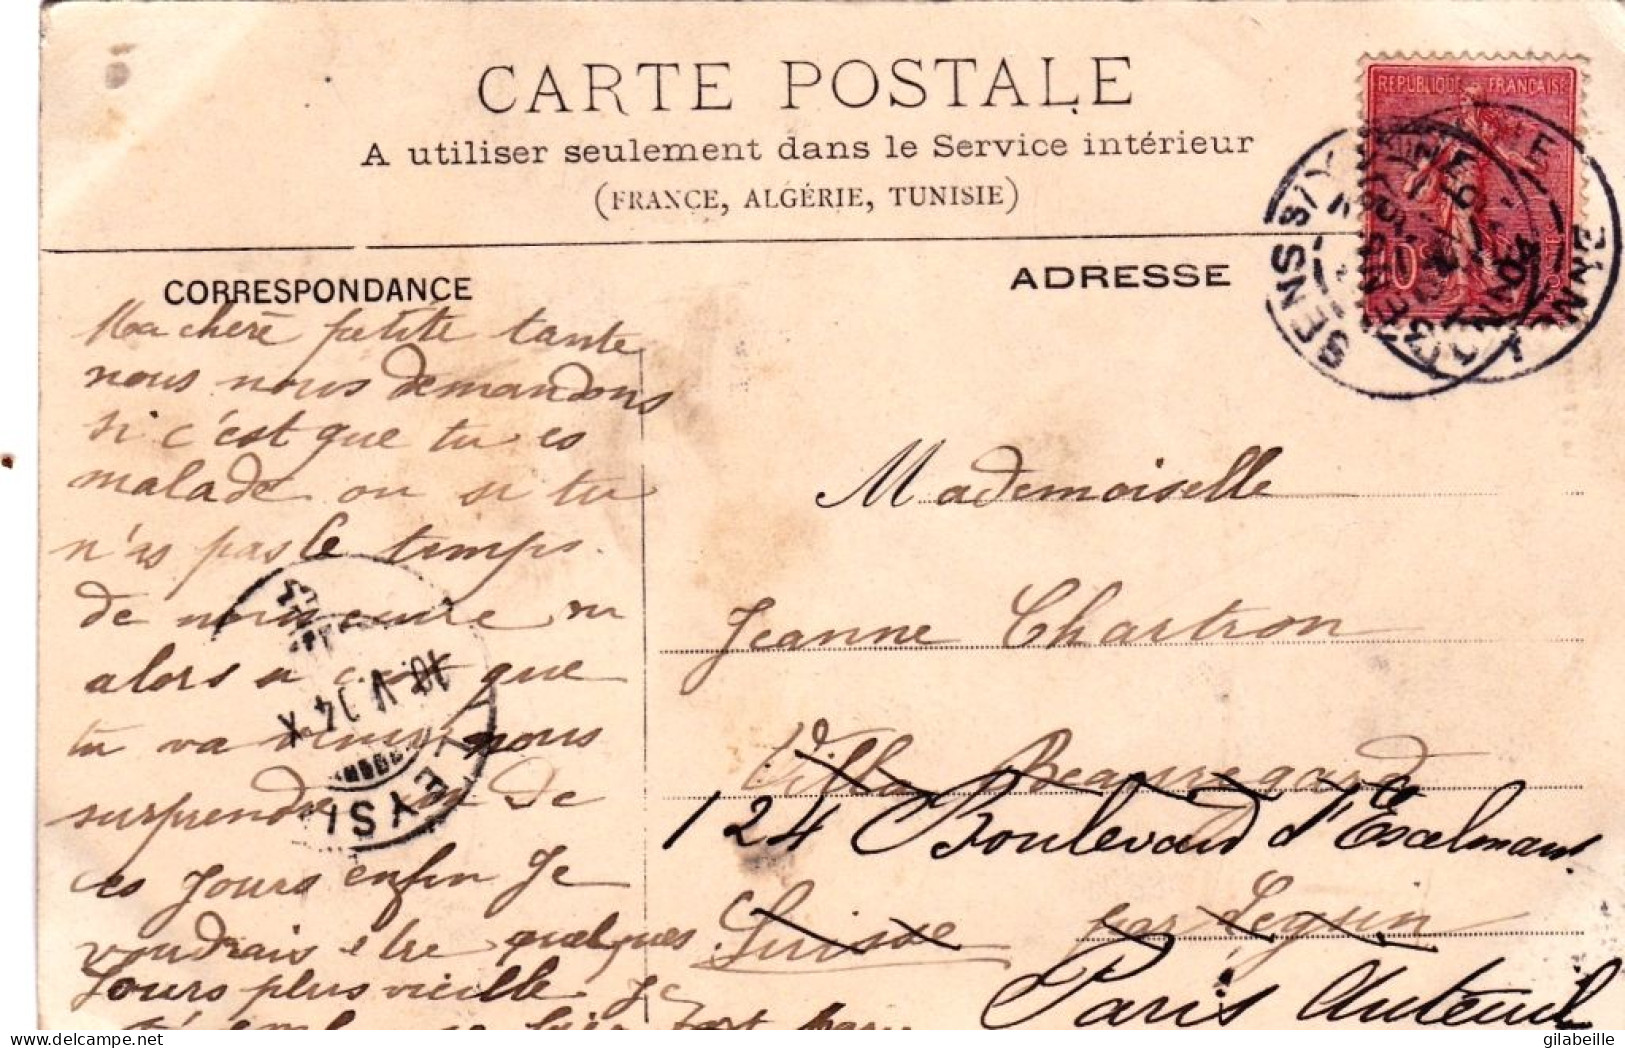 CARTE POSTALE
A utiliser seulement dans le Service intérieur
(FRANCE, ALGÉRIE, TUNISIE)
REPUBLIQUE FRANÇAISE
SENS S/Y YONNE
CORRESPONDANCE
ADRESSE
Ma chere petite tante
nous nous demandons
si c'est que tu es
malade ou si tu
n'as pas le temps
de nous
alors c'est que
tu va venir nous
surprendre un de
ces jours enfin je
voudrais etre quelques
jours plus vieille je
t'embrasse bien fort
LEYSIN
10 V 04 X
Mademoiselle
Jeanne Chartron
Villa Beauregard
124 Boulevard d'Exelmans
Suisse par Leysin
Paris Auteuil
gilabeille